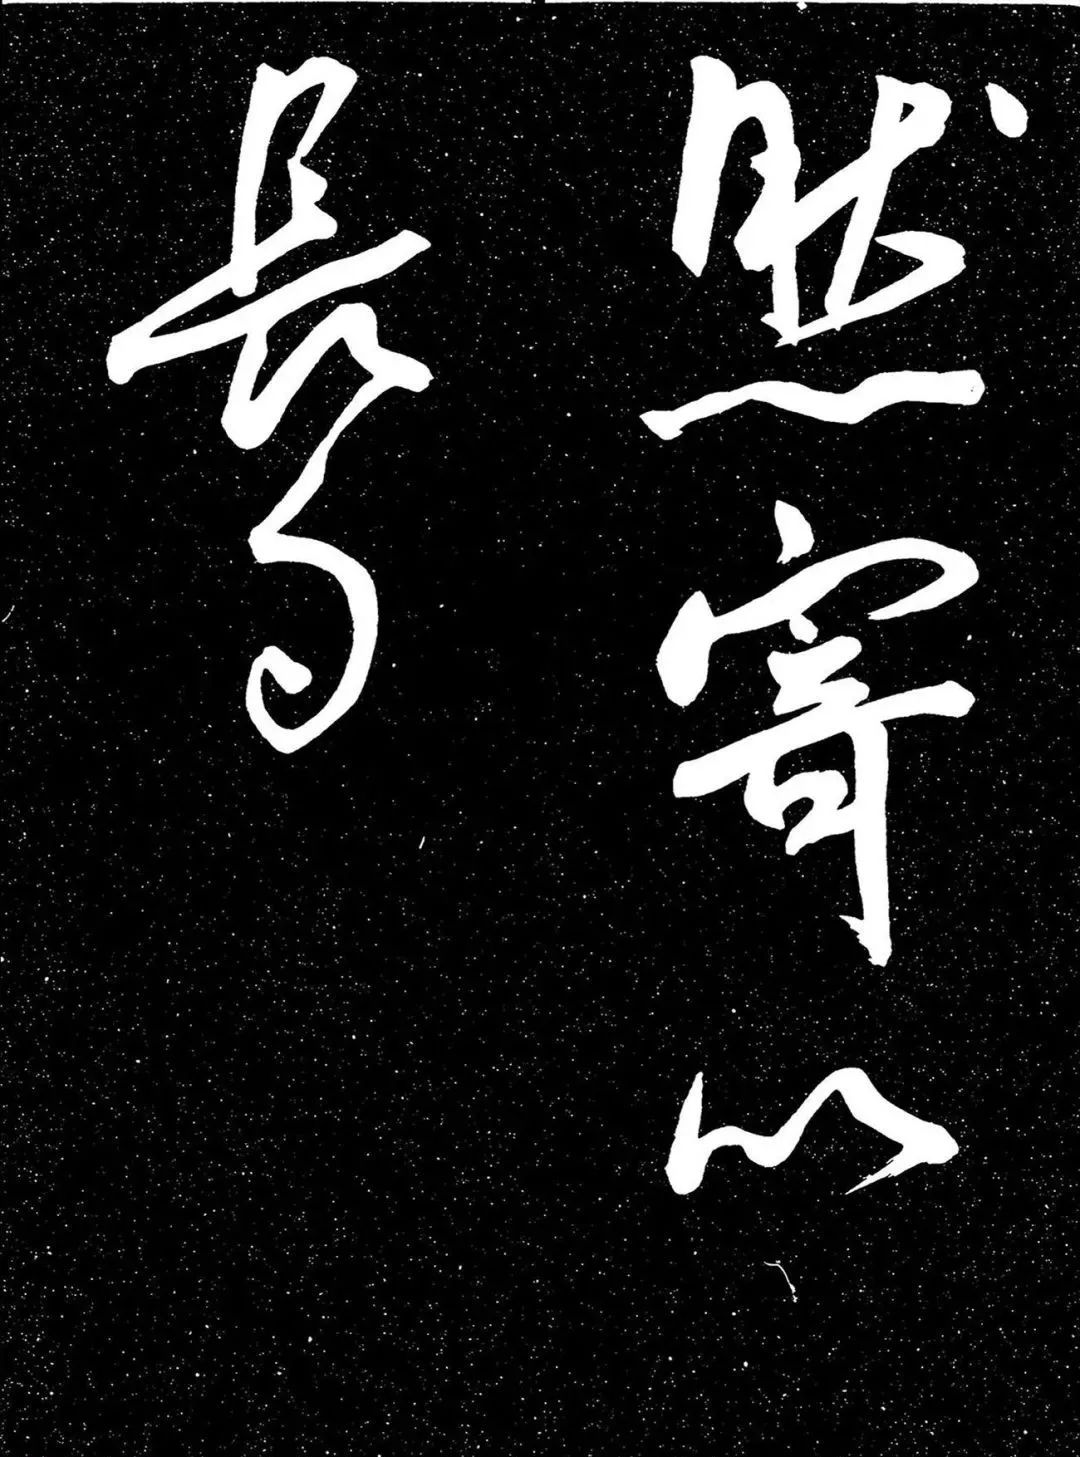 然寄以
長句